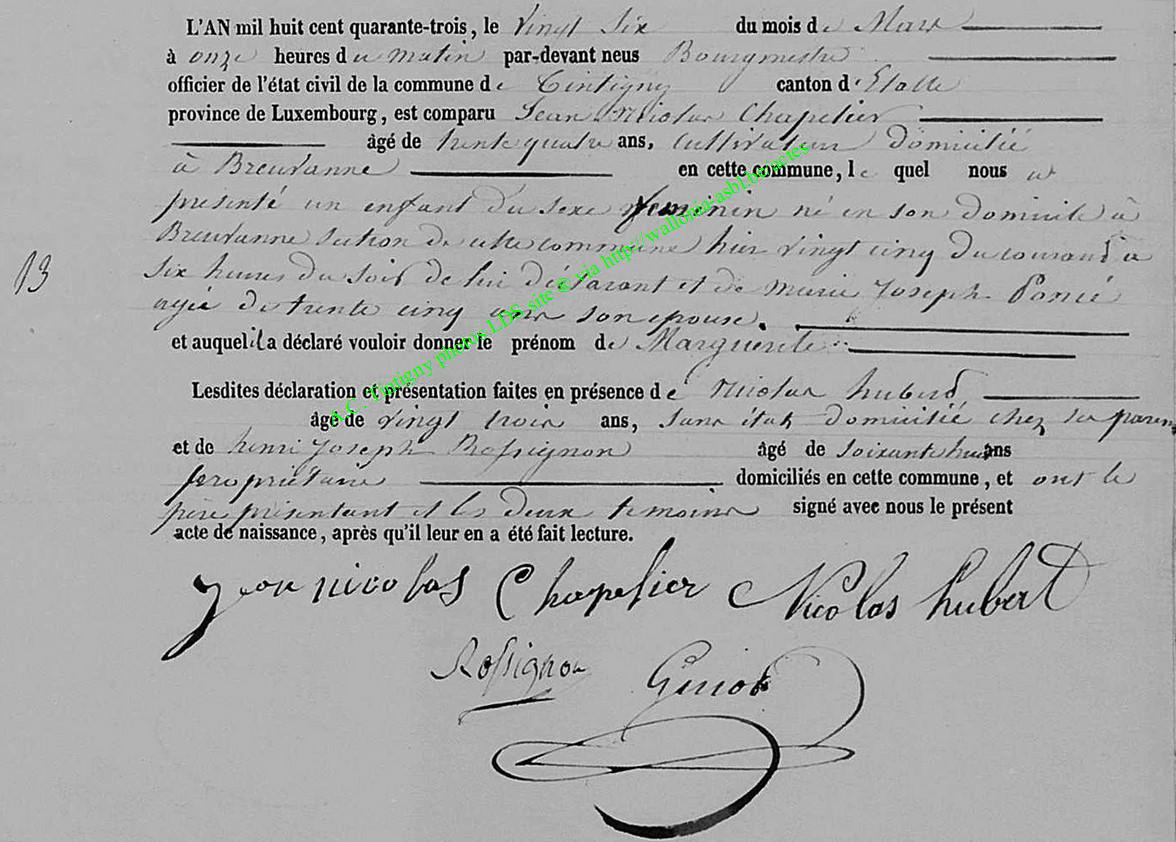 L'AN mil huit cent quarante-trois, le Vingt Six du mois de Mars
à onze heures du matin par-devant neus Bourgmestre
officier de l'état civil de la commune de Tintigny canton d'Etalle
province de Luxembourg, est comparu Jean Nicolas Chapelier
âgé de trente quatre ans, Cultivateur domicilié
à Breuvanne en cette commune, le quel nous a
présenté un enfant du sexe feminin né en son domicile à
Breuvanne section de cette commune hier vingt cinq du courant à
six heures du soir de lui déclarant et de marie Joseph Poncé
agée de trente cinq ans son epouse.
et auquel il a déclaré vouloir donner le prénom de Marguerite
13
Lesdites déclaration et présentation faites en présence de Nicolas hubert
âgé de vingt trois ans, sans état domicilié chez ses parens
et de henri Joseph Rossignon âgé de soixante huit ans
propriétaire domiciliés en cette commune, et ont le
père présentant et les deux temoins signé avec nous le présent
acte de naissance, après qu'il leur en a été fait lecture.
jean nicolas Chapelier Nicolas hubert
Rossignon
A.C. Tintigny photos LDS, site © via http://wallonia-asbl.be/actes